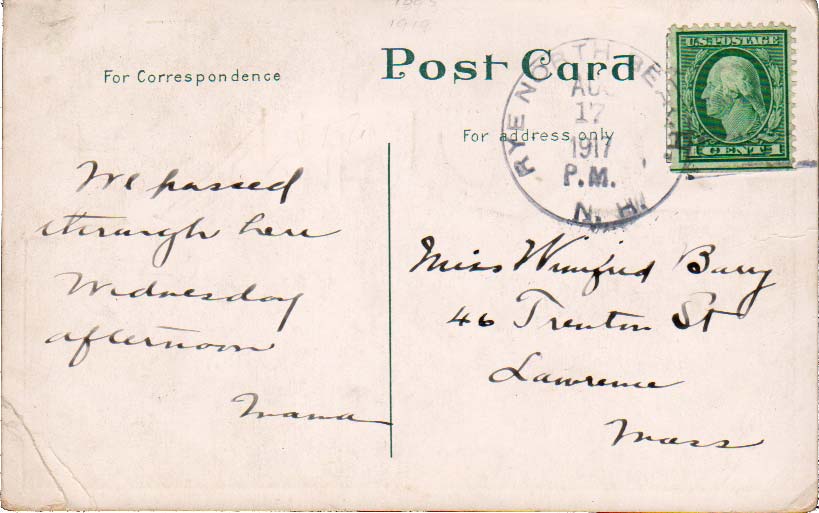 1919
Post Card
For Correspondence
For address only
RYE NORTH BEACH
AUG
17
1917
P.M.
N. H.
U.S. POSTAGE
1 CENT 1
We passed
through here
Wednesday
afternoon
Mama
Miss Winifred Burry
46 Trenton St
Lawrence
Mass